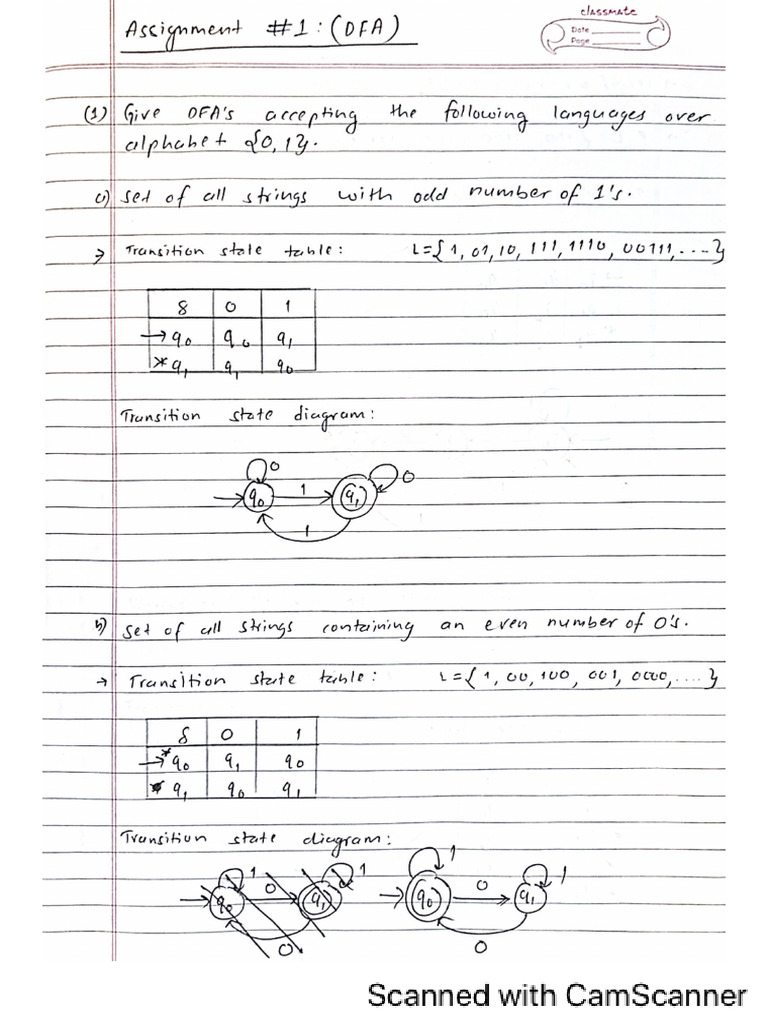 Assignment #1: (DFA)
classmate
Date
Page
(1) Give DFA's accepting the following languages over
alphabet {0,1}.
a) set of all strings with odd number of 1's.
→ Transition state table: L={1, 01, 10, 111, 1110, 00111, ....}
δ 0 1
→q0 q0 q1
*q1 q1 q0
Transition state diagram:
0 0
q0 1 q1
1
b) set of all strings containing an even number of 0's.
→ Transition state table: L={1, 00, 100, 001, 0000, ....}
δ 0 1
→*q0 q1 q0
q1 q0 q1
Transition state diagram:
1 1 1 1
q0 0 q1 q0 0 q1
0 0
Scanned with CamScanner